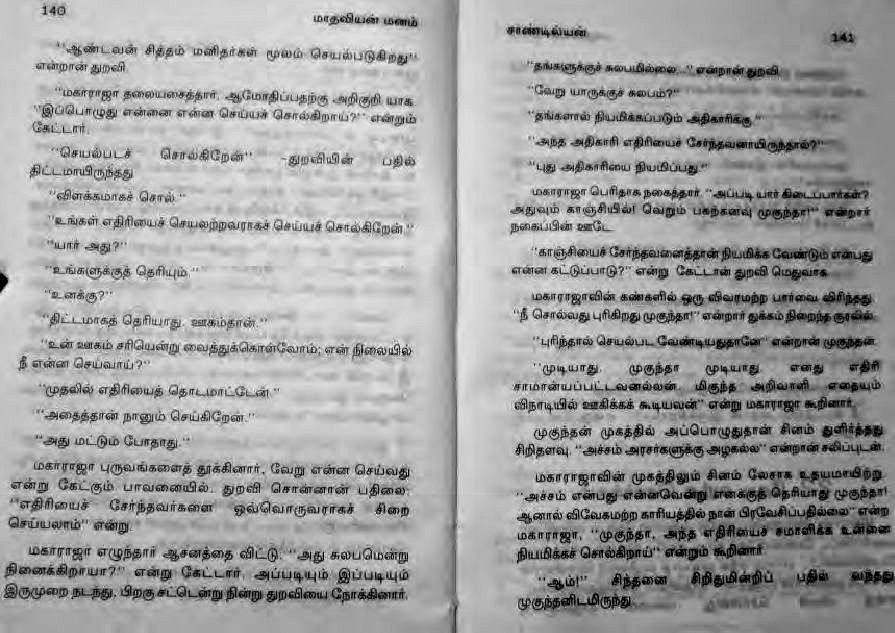 140
மாதவியன் மனம்
"ஆண்டவன் சித்தம் மனிதர்கள் மூலம் செயல்படுகிறது"
என்றான் துறவி.
"மகாராஜா தலையசைத்தார், ஆமோதிப்பதற்கு அறிகுறி யாக
"இப்பொழுது என்னை என்ன செய்யச் சொல்கிறாய்?" என்றும்
கேட்டார்.
"செயல்படச் சொல்கிறேன்" -துறவியின் பதில்
திட்டமாயிருந்தது
"விளக்கமாகச் சொல்."
"உங்கள் எதிரியைச் செயலற்றவராகச் செய்யச் சொல்கிறேன்."
"யார் அது?"
"உங்களுக்குத் தெரியும்."
"உனக்கு?"
"திட்டமாகத் தெரியாது. ஊகம்தான்."
"உன் ஊகம் சரியென்று வைத்துக்கொள்வோம்; என் நிலையில்
நீ என்ன செய்வாய்?"
"முதலில் எதிரியைத் தொடமாட்டேன்."
"அதைத்தான் நானும் செய்கிறேன்."
"அது மட்டும் போதாது."
மகாராஜா புருவங்களைத் தூக்கினார், வேறு என்ன செய்வது
என்று கேட்கும் பாவனையில். துறவி சொன்னான் பதிலை;
"எதிரியைச் சேர்ந்தவர்களை ஒவ்வொருவராகச் சிறை
செய்யலாம்" என்று.
மகாராஜா எழுந்தார் ஆசனத்தை விட்டு. "அது சுலபமென்று
நினைக்கிறாயா?" என்று கேட்டார். அப்படியும் இப்படியும்
இருமுறை நடந்து, பிறகு சட்டென்று நின்று துறவியை நோக்கினார்.
சாண்டில்யன்
141
"தங்களுக்குச் சுலபமில்லை..." என்றான் துறவி.
"வேறு யாருக்குச் சுலபம்?"
"தங்களால் நியமிக்கப்படும் அதிகாரிக்கு."
"அந்த அதிகாரி எதிரியைச் சேர்ந்தவனாயிருந்தால்?"
"புது அதிகாரியை நியமிப்பது."
மகாராஜா பெரிதாக நகைத்தார். "அப்படி யார் கிடைப்பார்கள்?
அதுவும் காஞ்சியில்! வெறும் பகற்கனவு முகுந்தா!" என்றார்
நகைப்பின் ஊடே.
"காஞ்சியைச் சேர்ந்தவனைத்தான் நியமிக்க வேண்டும் என்பது
என்ன கட்டுப்பாடு?" என்று கேட்டான் துறவி மெதுவாக.
மகாராஜாவின் கண்களில் ஒரு விவரமற்ற பார்வை விரிந்தது.
"நீ சொல்வது புரிகிறது முகுந்தா!" என்றார் துக்கம் நிறைந்த குரலில்.
"புரிந்தால் செயல்பட வேண்டியதுதானே" என்றான் முகுந்தன்.
"முடியாது. முகுந்தா முடியாது எனது எதிரி
சாமான்யப்பட்டவனல்லன். மிகுந்த அறிவாளி. எதையும்
விநாடியில் ஊகிக்கக் கூடியவன்" என்று மகாராஜா கூறினார்.
முகுந்தன் முகத்தில் அப்பொழுதுதான் சினம் துளிர்த்தது
சிறிதளவு. "அச்சம் அரசர்களுக்கு அழகல்ல" என்றான் சலிப்புடன்.
மகாராஜாவின் முகத்திலும் சினம் லேசாக உதயமாயிற்று.
"அச்சம் என்பது என்னவென்று எனக்குத் தெரியாது முகுந்தா!
ஆனால் விவேகமற்ற காரியத்தில் நான் பிரவேசிப்பதில்லை" என்ற
மகாராஜா, "முகுந்தா, அந்த எதிரியைச் சமாளிக்க உன்னை
நியமிக்கச் சொல்கிறாய்" என்றும் கூறினார்.
"ஆம்!" சிந்தனை சிறிதுமின்றிப் பதில் வந்தது
முகுந்தனிடமிருந்து.